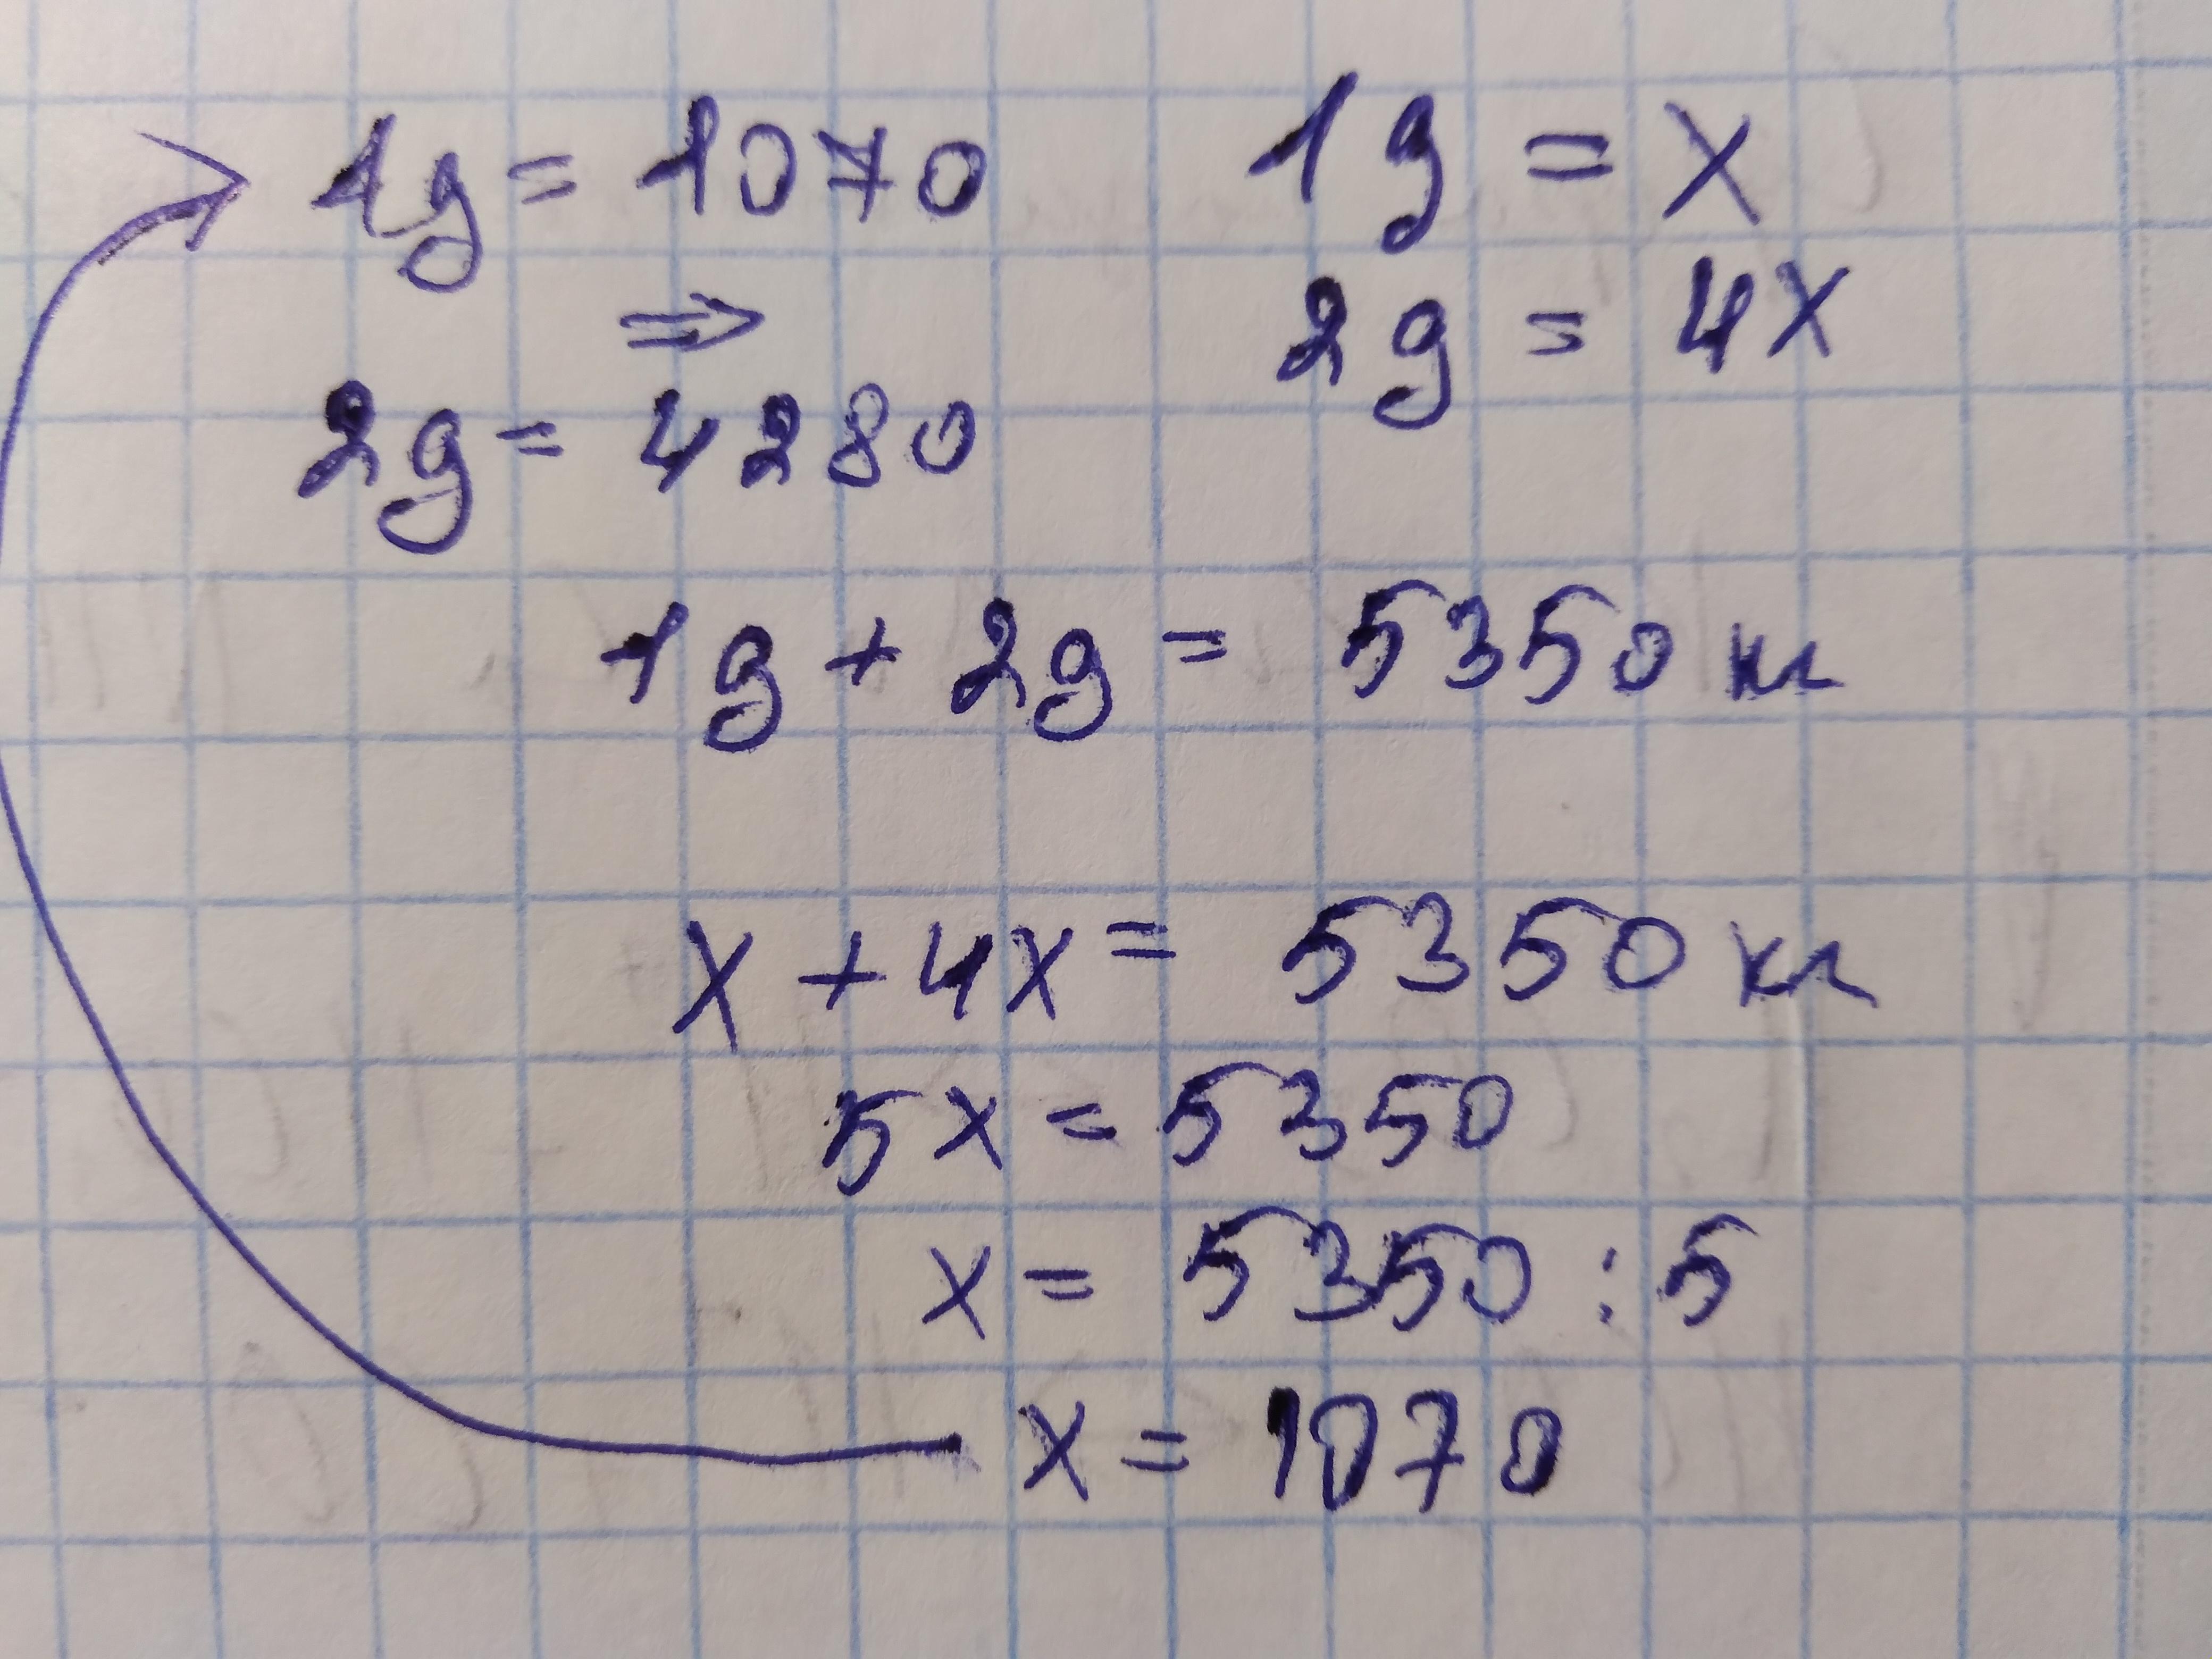 1g = 1070
1g = x
2g = 4x
⇒
2g = 4280
1g + 2g = 5350 кг
x + 4x = 5350 кг
5x = 5350
x = 5350 : 5
x = 1070